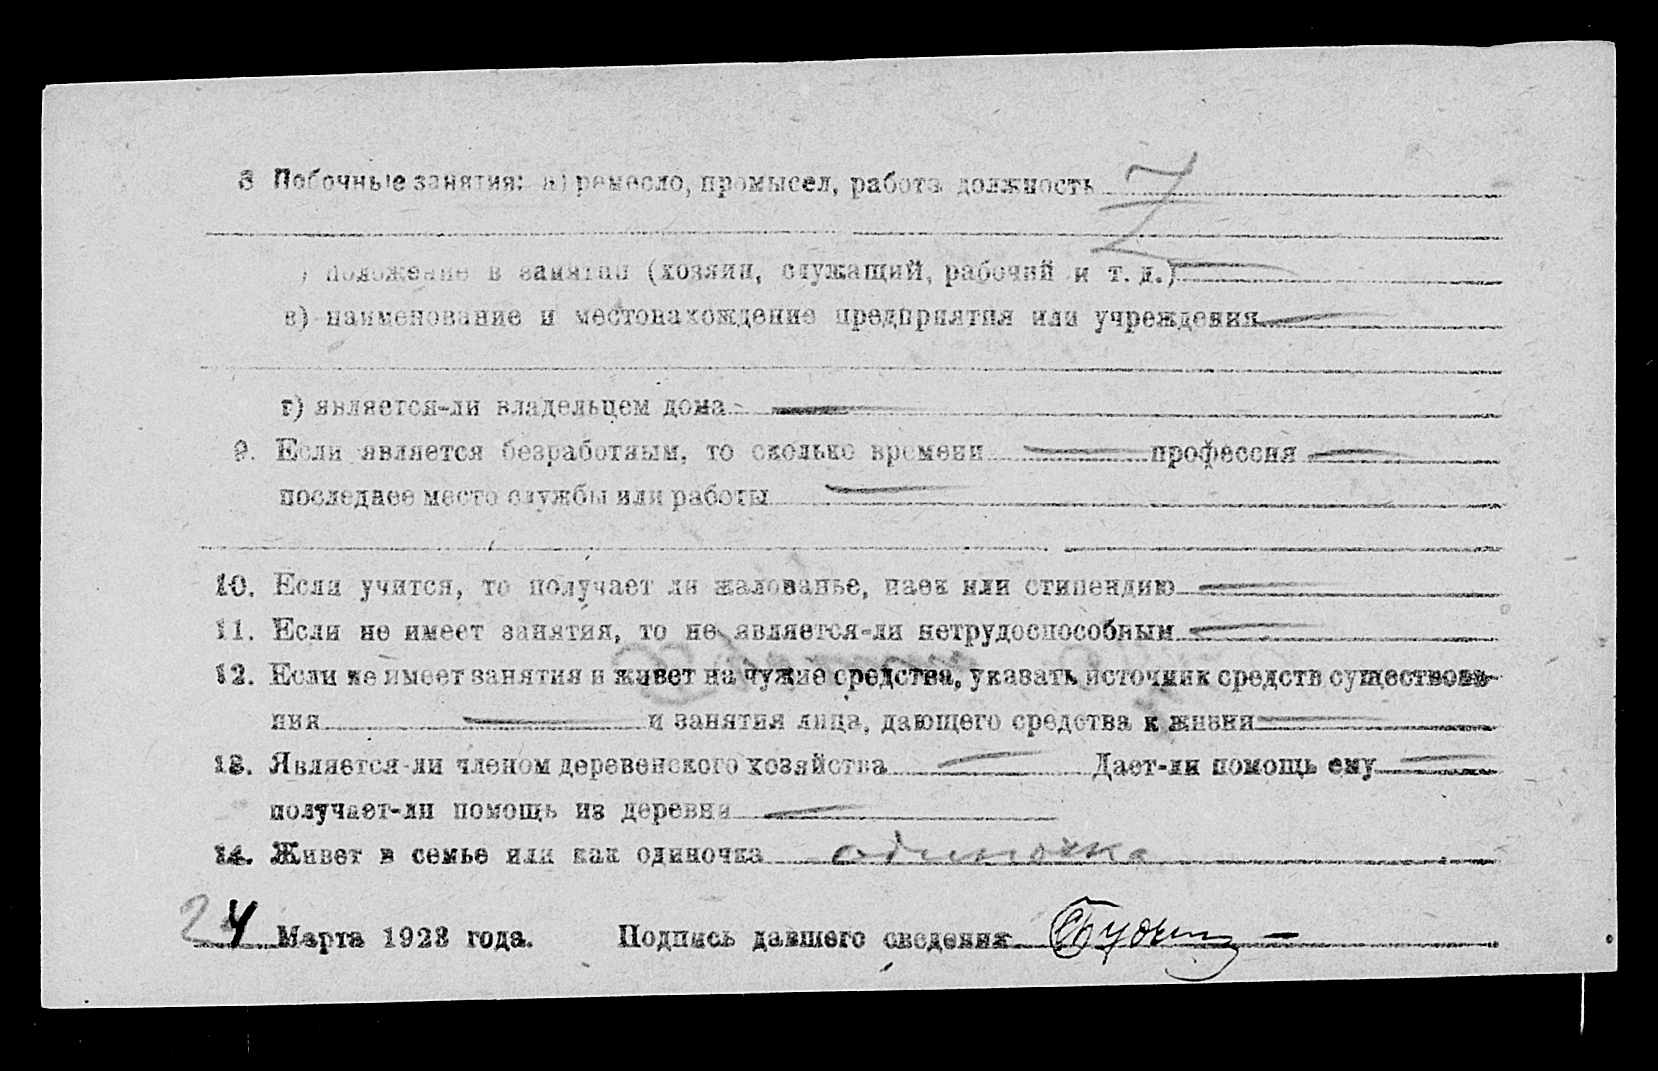 8 Побочные занятия: а) ремесло, промысел, работа должность
) положение в занятии (хозяин, служащий, рабочий и т. д.)
в) наименование и местонахождение предприятия или учреждения
г) является-ли владельцем дома
9. Если является безработным, то сколько времени профессия
последнее место службы или работы
10. Если учится, то получает ли жалованье, паек или стипендию
11. Если не имеет занятия, то не является-ли нетрудоспособным
12. Если не имеет занятия и живет на чужие средства, указать источник средств существова-
ния и занятия лица, дающего средства к жизни
13. Является-ли членом деревенского хозяйства Дает-ли помощь ему
получает-ли помощь из деревни
14. Живет в семье или как одиночка одиночка
24 Марта 1923 года. Подпись давшего сведения